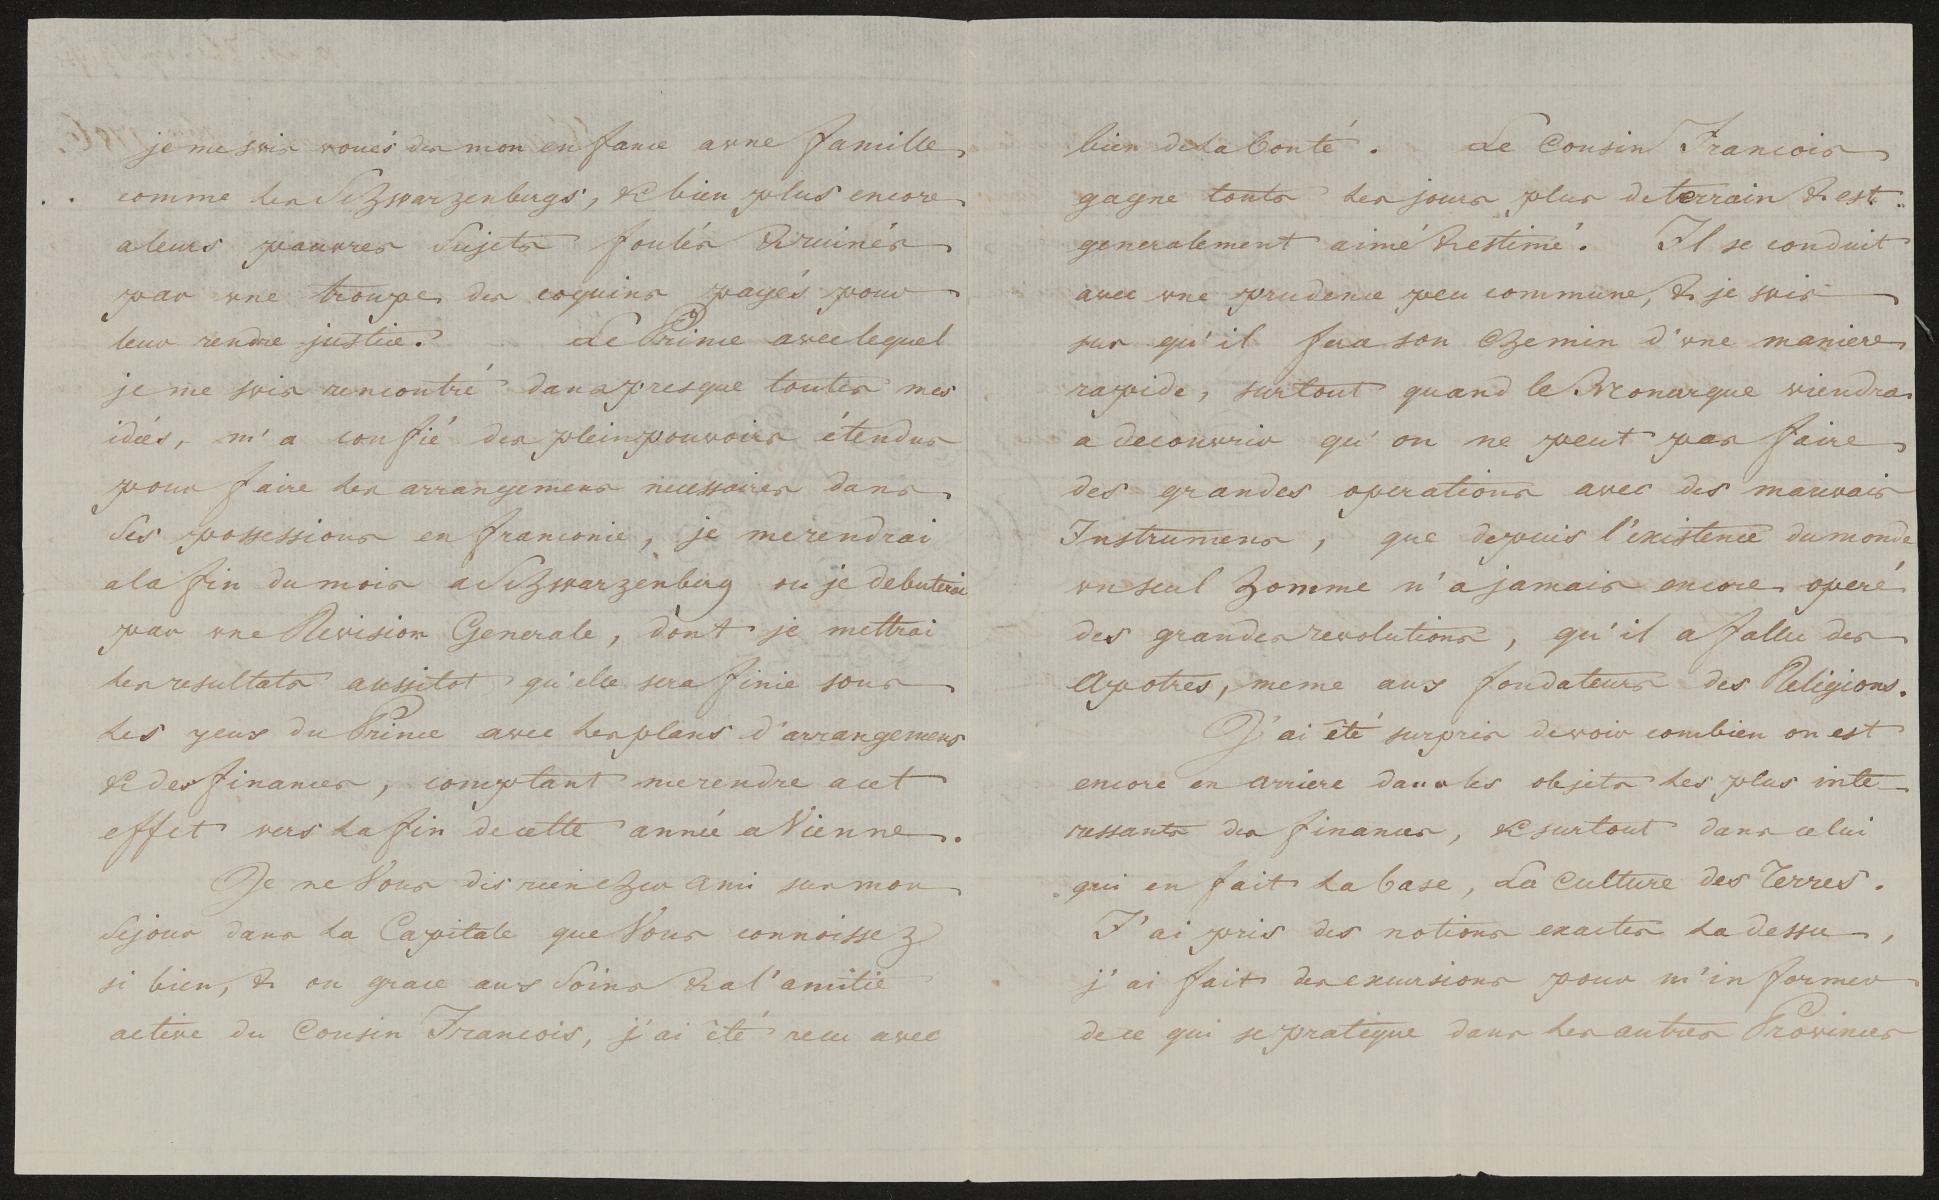 je me suis voués des mon enfance a une famille
comme les Schwarzenbergs, & bien plus encore
a leurs pauvres Sujets foulés & ruinés
par une troupe des coquins payés pour
leur rendre justice. Le Prince avec lequel
je me suis rencontré dans presque toutes mes
idées, m'a confié des pleinpouvoirs étendus
pour faire les arrangemens necessaires dans
ses possessions en franconie, je me rendrai
a la fin du mois a Schwarzenberg ou je debuterai
par une Revision Generale, dont je mettrai
les resultats aussitot qu'elle sera finie sous
les yeux du Prince avec les plans d'arrangemens
& des finances, comptant me rendre a cet
effet vers la fin de cette année a Vienne.
Je ne Vous dis rien cher ami sur mon
Sejour dans la Capitale que Vous connoissez
si bien, & ou grace aux Soins & a l'amitie
active du Cousin Francois, j'ai été recu avec
bien de la bonté. Le Cousin Francois
gagne touts les jours plus de terrain & est
generalement aimé & estimé. Il se conduit
avec une prudence peu commune, & je suis
sur qu'il fera son chemin d'une maniere
rapide, surtout quand le Monarque viendra
a decouvrir qu'on ne peut pas faire
des grandes operations avec des mauvais
Instrumens, que depuis l'existence du monde
un seul homme n'a jamais encore operé
des grandes revolutions, qu'il a fallu des
Apotres, meme aux fondateurs des Religions.
J'ai été surpris de voir combien on est
encore en arriere dans les objets les plus inte-
ressants des finances, & surtout dans celui
qui en fait la base, La Culture des Terres.
J'ai pris des notions exactes la dessu,
j'ai fait des excursions pour m'informer
de ce qui se pratique dans les autres Provinces